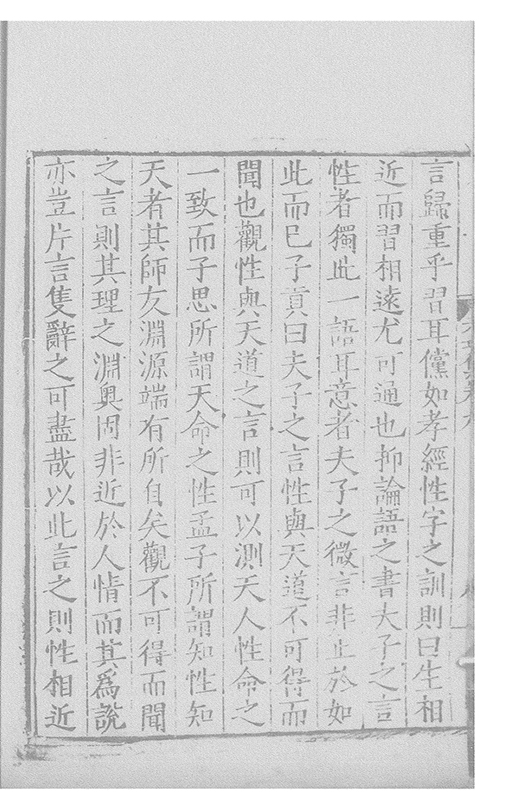 言歸重乎習耳儻如孝經性字之訓則曰生相
近而習相遠尤可通也抑論語之書夫子之言
性者獨此一語耳意者夫子之微言非止於如
此而已子貢曰夫子之言性與天道不可得而
聞也觀性與天道之言則可以測天人性命之
一致而子思所謂天命之性孟子所謂知性知
天者其師友淵源端有所自矣觀不可得而聞
之言則其理之淵奧固非近於人情而其爲說
亦豈片言隻辭之可盡哉以此言之則性相近